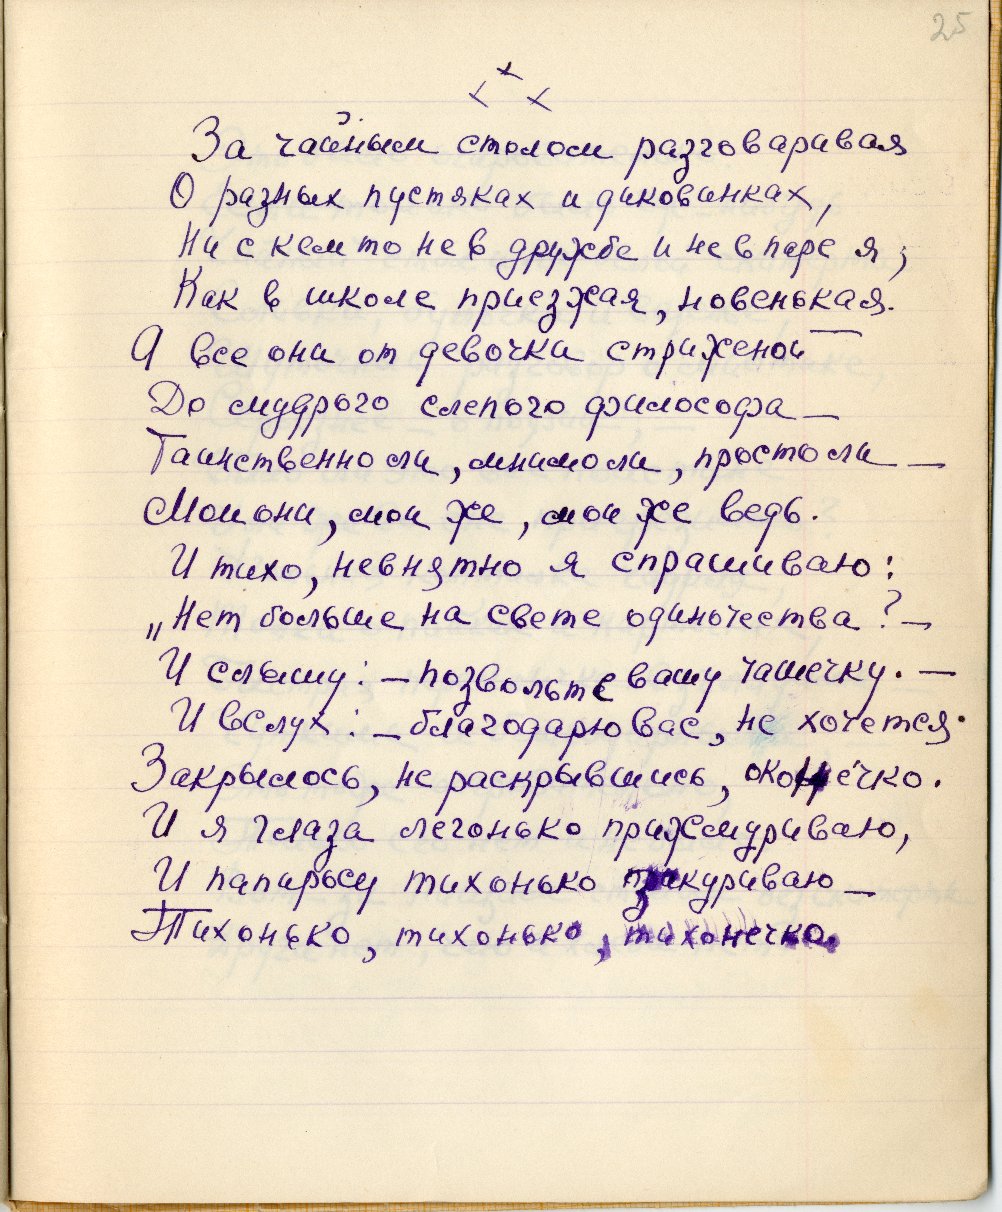 25
× × ×
За чайным столом разговаривая
О разных пустяках и диковинках,
Ни с кем то не в дружбе и не в паре я,
Как в школе приезжая, новенькая.
А все они от девочки стриженой
До мудрого слепого философа —
Таинственно ли, мнимо ли, просто ли —
Мои они, мои же, мои же ведь.
И тихо, невнятно я спрашиваю:
„Нет больше на свете одиночества? —
И слышу: — позвольте вашу чашечку. —
И вслух: — благодарю вас, не хочется.
Закрылось, не раскрывшись, оконечко.
И я глаза легонько прижмуриваю,
И папиросу тихонько закуриваю —
Тихонько, тихонько, тихонечко.